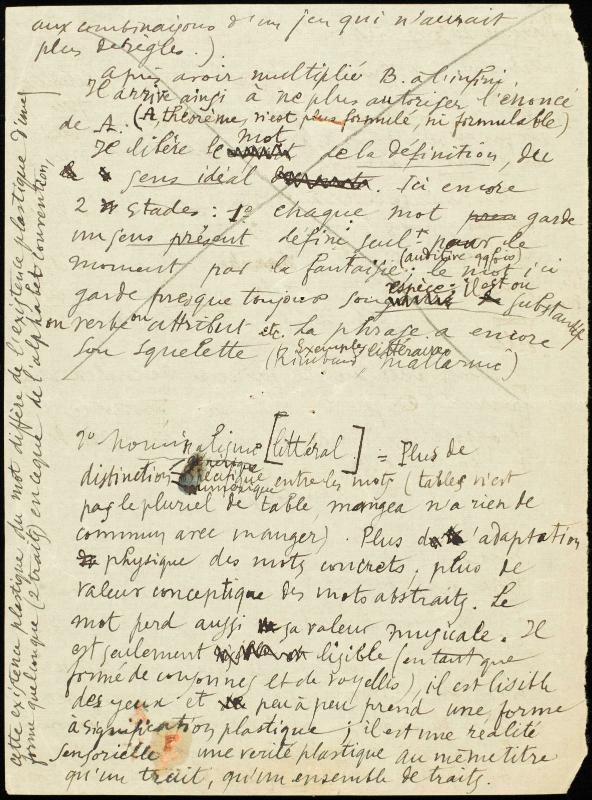 aux combinaisons d'un jeu qui n'aurait
plus de règles.)
après avoir multiplié B. à l'infini
Il arrive ainsi à ne plus autoriser l'énoncé
de A. (A, théorème, n'est plus formulé, ni formulable)
Il libère le mot de la définition, du
sens idéal. Ici encore
2 stades : 1º chaque mot garde
un sens présent défini seult pour le
moment par la fantaisie, (auditive qqfois) ; le mot ici
garde presque toujours son espèce : il est ou substantif
ou verbe ou attribut etc. La phrase a encore
son squelette (Exemples littéraires Rimbaud, Mallarmé)
2º Nominalisme [littéral] = Plus de
distinction générique spécifique numérique entre les mots (tables n'est
pas le pluriel de table, mangea n'a rien de
commun avec manger). Plus d'adaptation
physique des mots concrets ; plus de
valeur conceptique des mots abstraits. Le
mot perd aussi sa valeur musicale. Il
est seulement lisible (en tant que
formé de consonnes et de voyelles), il est lisible
des yeux et peu à peu prend une forme
à signification plastique ; il est une réalité
sensorielle une vérité plastique au même titre
qu'un trait, qu'un ensemble de traits.
cette existence plastique du mot diffère de l'existence plastique d'une
forme quelconque (2 traits) en ce que de l'alphabet convention,